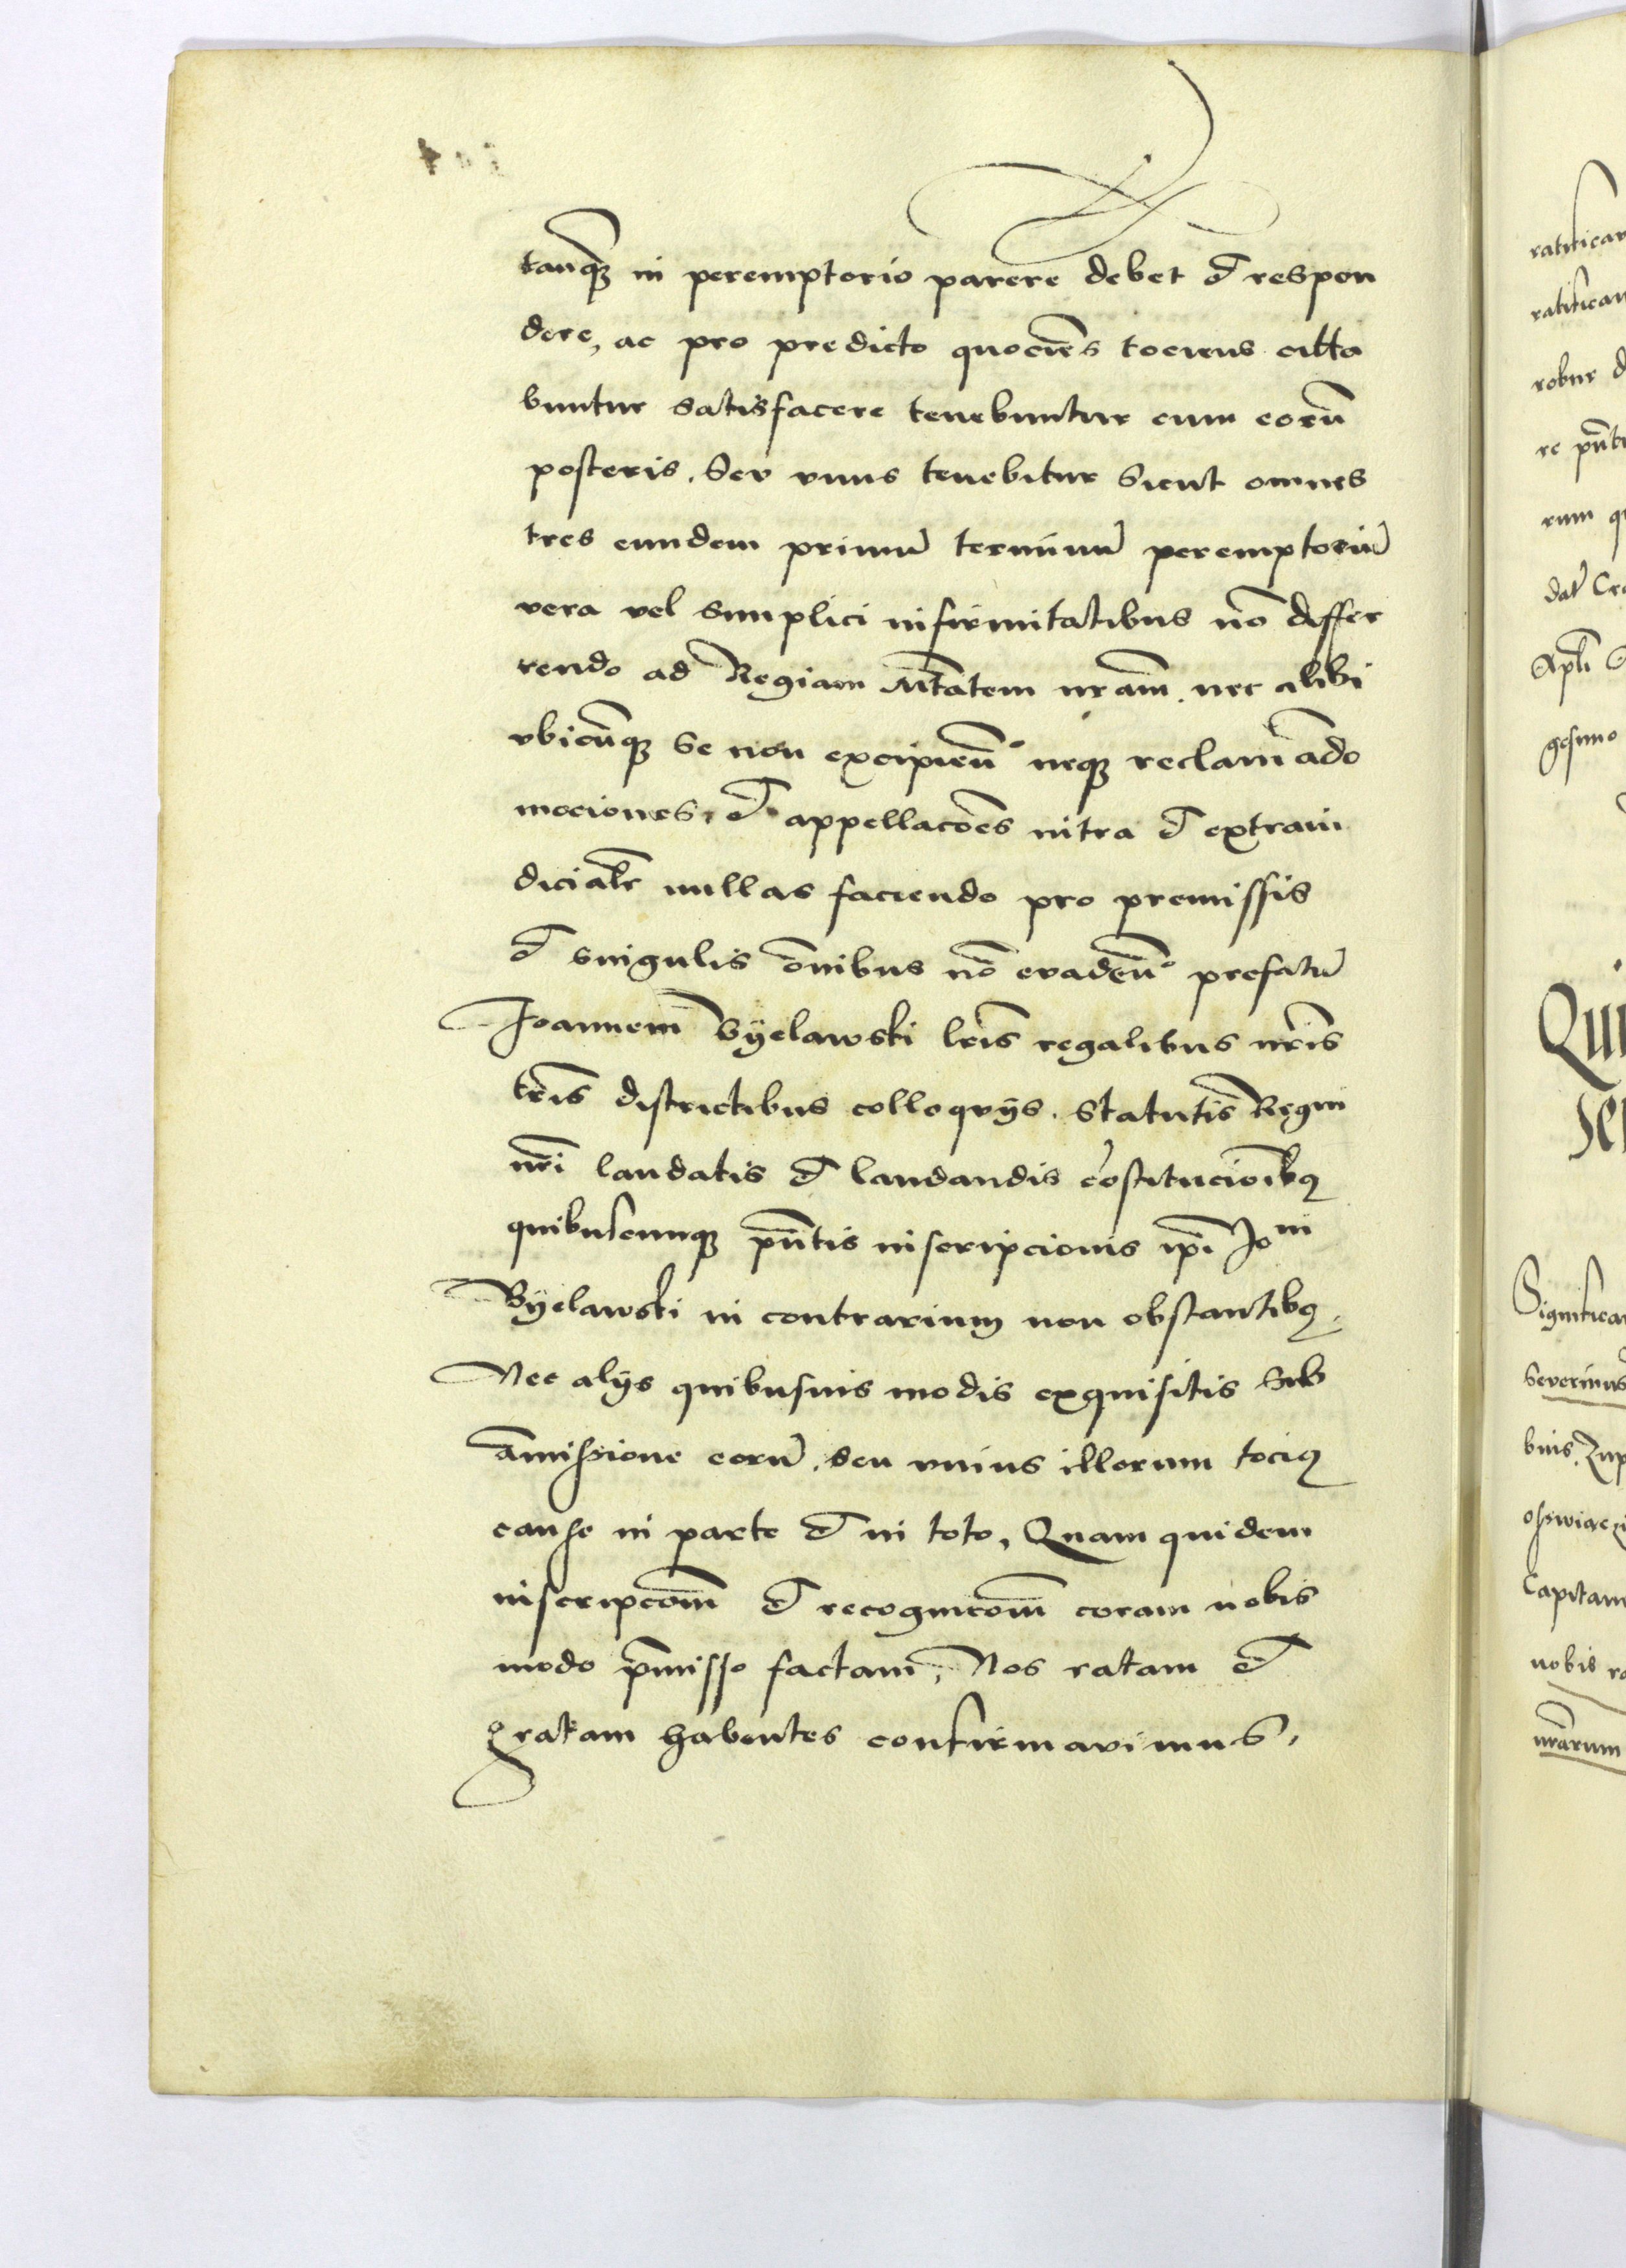 tanq̃ꝫ in peremptorio parere debet et respon
dere, ac pro predicto quociẽs tociens citta
buntur satisfacere tenebuntur cum eorũ
posteris. Seu vnus tenebitur Sicut omnes
tres eundem primũ terminũ peremptoriũ
vera vel simplici infirmitatibus nõ differ
rendo ad Regiam Mtãtem nrãm. nec alibi
vbicũqꝫ se non excipieñ° neqꝫ reclamãdo
mociones, et appellacões intra et extraiu
diciãlr nullas faciendo pro premissis
et singulis õnibus nõ evadeñ° prefatũ
Joannem Byelawski lrĩs regalibus nrĩs
trĩs districtibus colloquÿs. Statutis Regni
nrĩ laudatis et laudandis cõstitucionĩbꝯ
quibuscunqꝫ pñtis inscripcionis ip̃i Joni
Byelawski in contrarium non obstantibꝯ.
Nec alÿs quibusuis modis exquisitis Sub
amissione eorũ. seu vnius illorum tociꝯ
cause in parte et in toto, Quam quidem
inscripcõm et recognicõm coram nobis
modo p̃misso factam, Nos ratam et
gratam habentes confirmavimus.
ratificam
ratifican
robur
re pñti
rum
dat̃ Cra
Apl̃i
gesimo
Significa
Severinus
bnis. Zup
osswiecz
Capitan
nobis
nr̃arum